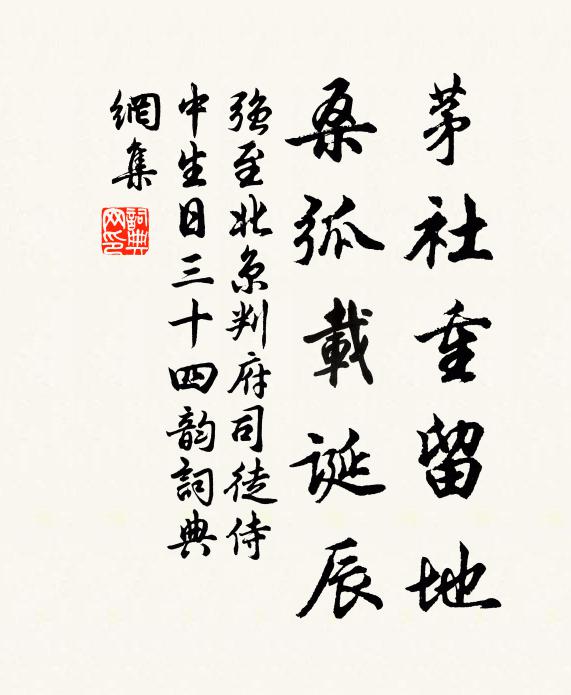 茅社重留地
桑弧載誕辰
強至北京判府司徒侍
中生日三十四韵詞典
網集
詞典网印